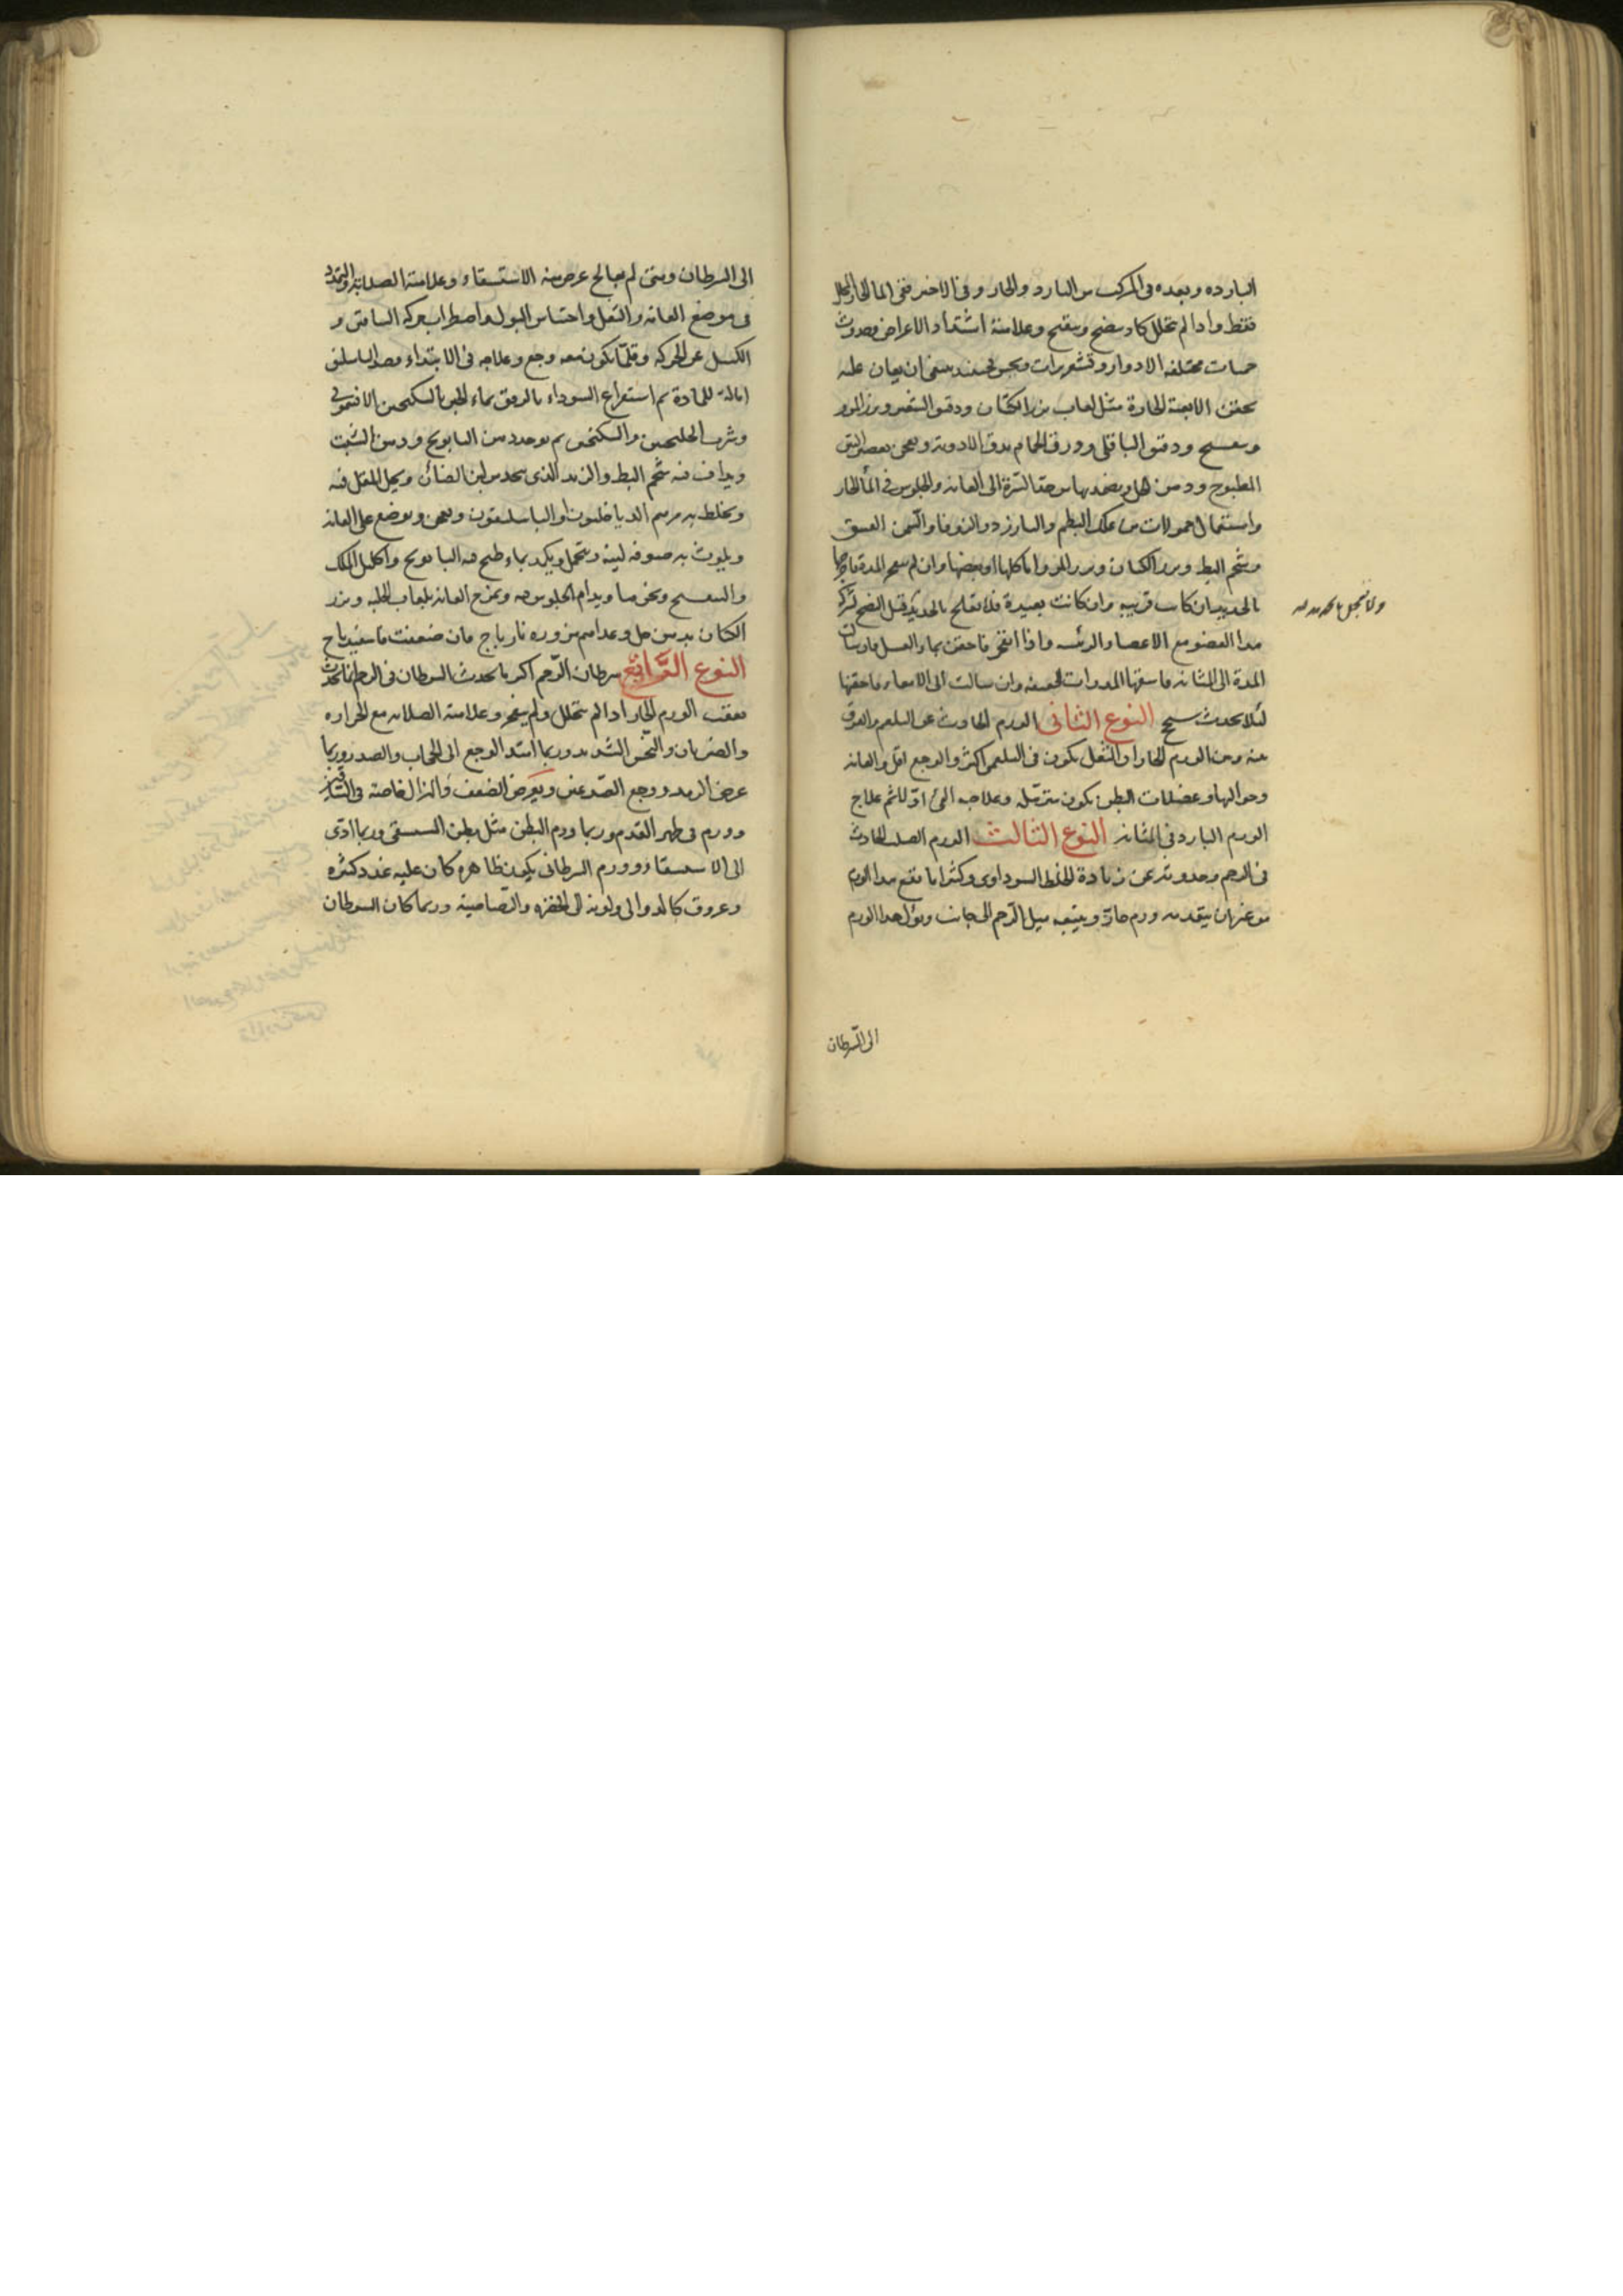 البارده وبعده فى المركب من البارد والحار وفى الاخير ففى الما الحار المحلل
فقط واذا لم يتحلل كاد ينضج ويتقيح وعلامته اشتداد الاعراض وحدوث
حميات مختلفه الادوار وقشعريرات وحينئذ ينبغى ان يعان عليه
بحقن الادوية الحارة مثل لعاب بزر الكتان ودقيق الشعير وبزر المرو
وبنفسج ودقيق الباقلى وورق الحمام يدق الادوية ويعجن بعصير التين
المطبوخ ودهن الحل ويضمد بها من حد السرة الى العانه والجلوس فى الماء الحار
واستعمال حمولات من علك البطم والبارزد والزوفا والسمن العتيق
وشحم البط وبزر الكتان وبزر المرو اما كلها او بعضها وان لم تنفجر المدة
بالحديد ان كانت قريبه وان كانت بعيدة فلا تعالج بالحديد قبل النضج
هذا العضو مع الاعضاء الرئيسه واذا انفجر فاحقن بماء العسل فان سالت
المدة الى المثانه فاسقها المدرات الخفيفه وان سالت الى الامعاء فاحقنها
لئلا يحدث سحج النوع الثانى الورم الحادث عن البلغم والفرق
بينه وبين الورم الحار ان الثقل يكون فى البلغمى اكثر والوجع اقل والعانه
وحواليها وعضلات البطن يكون مترهله وعلاجه القئ اوّلا ثم علاج
الورم البارد فى المثانه النوع الثالث الورم الصلب الحادث
فى الرحم وحدوثه عن زيادة الخلط السوداوى وكثيرا ما يقع هذا الورم
من غير ان يتقدمه ورم حارّ ويتبعه ميل الرّحم الى جانب ويؤل هذا الورم
الى السّرطان
الى السرطان ومتى لم يعالج عرض منه الاستسقاء وعلامته الصلابة والتمدد
فى موضع العانه والثقل واحتباس البول واضطراب حركه الساقين و
الكسل عن الحركه وقلّما يكون معه وجع وعلاجه فى الابتداء فصد الباسليق
امالة للمادة ثم استفراغ السوداء بالرفق بماء الجبن بالسكنجبين الافتيمونى
وشرب الجلنجبين والسكنجبين ثم يوخذ دهن البابونج ودهن الشبت
ويداف فيه شحم البط والزبد الذى يتخذ من لبن الضأن ويحل المقل فيه
ويخلط به مرهم الدياخليون او الباسليقون ويعجن ويوضع على العانه
ويلوث به صوفه لينه وتتحمل ويكمد بماء طبخ فيه البابونج واكليل الملك
والبنفسج ونحوها ويدام الجلوس فيه وتمرخ العانه بلعاب الحلبه وبزر
الكتان بدهن حل وغذاءهم مزوره نارباج فان ضعفت فاسفيدباج
النوع الرّابع سرطان الرّحم اكثر ما يحدث السرطان فى الرحم انما يحدث
بعقب الورم الحار اذا لم يتحلل ولم ينفجر وعلامته الصلابه مع الحراره
والضربان والنّخس الشديد وربما امتد الوجع الى الحجاب والصدر وربما
عرض الرمد ووجع الصّدغين ويعرض الضعف والهزال خاصة فى السّاقين
وورم فى ظهر القدم وربما ورم البطن مثل بطن المستسقى وربما ادّى
الى الاستسقاء وورم السرطانى يكون ظاهره كان عليه غدد كثيره
وعروق كالدوالى ولونه الى الخضره والرّصاصية وربما كان السرطان